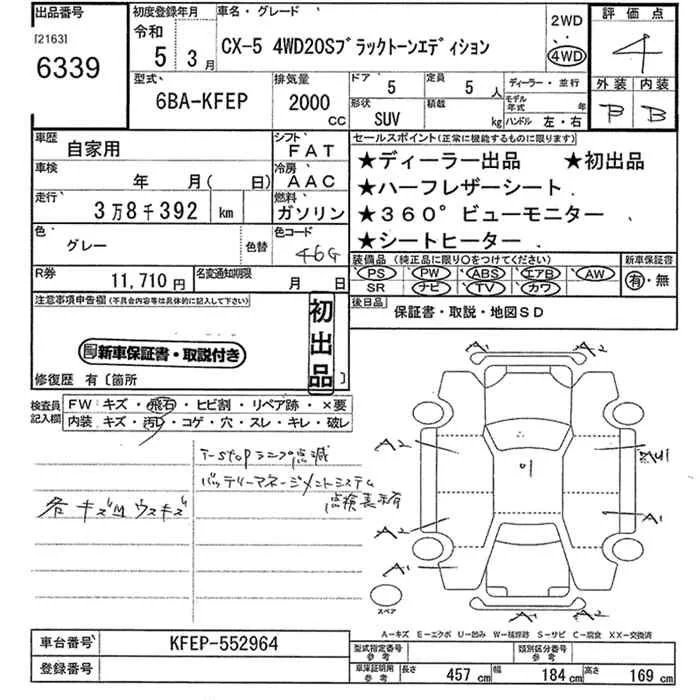 出品番号
[2163]
6339
初度登録年月
令和
5 3月
車名・グレード
CX-5 4WD20Sブラックトーンエディション
2WD
4WD
評価点
4
外装 内装
B B
型式
6BA-KFEP
排気量
2000
CC
ドア 5
定員 5 人
形状 SUV
積載 kg
ディーラー・並行
モデル年式 年
ハンドル 左・右
車歴 自家用
シフト FAT
車検 年 月( 日)
冷房 AAC
走行 3万8千392 km
燃料 ガソリン
色 グレー
色替
色コード 46G
R券 11,710円
名変通知期限 月 日
セールスポイント(正常に機能するものに限ります)
★ディーラー出品 ★初出品
★ハーフレザーシート
★360°ビューモニター
★シートヒーター
装備品(純正品に限り○をつけてください)
PS PW ABS エアB AW
SR ナビ TV カワ
新車保証書
有・無
後日品
保証書・取説・地図SD
注意事項申告欄(不具合内容等は具体的に記入して下さい)
新車保証書・取説付き
初出品
修復歴 有〔箇所 〕
検査員記入欄
FW キズ・飛石・ヒビ割・リペア跡・×要
内装 キズ・汚レ・コゲ・穴・スレ・キレ・破レ
i-stopランプ点滅
バッテリーマネージメントシステム
点検表示有
各キズM ウスキズ
A2 A2
A2
A2
A1
A1
A1
スペア
A-キズ E-エクボ U-凹み W-補修跡 S-サビ C-腐食 XX-交換済
車台番号 KFEP-552964
登録番号
型式指定番号 参考
類別区分番号 参考
車庫証明用 参考
長さ 457cm 幅 184cm 高さ 169cm